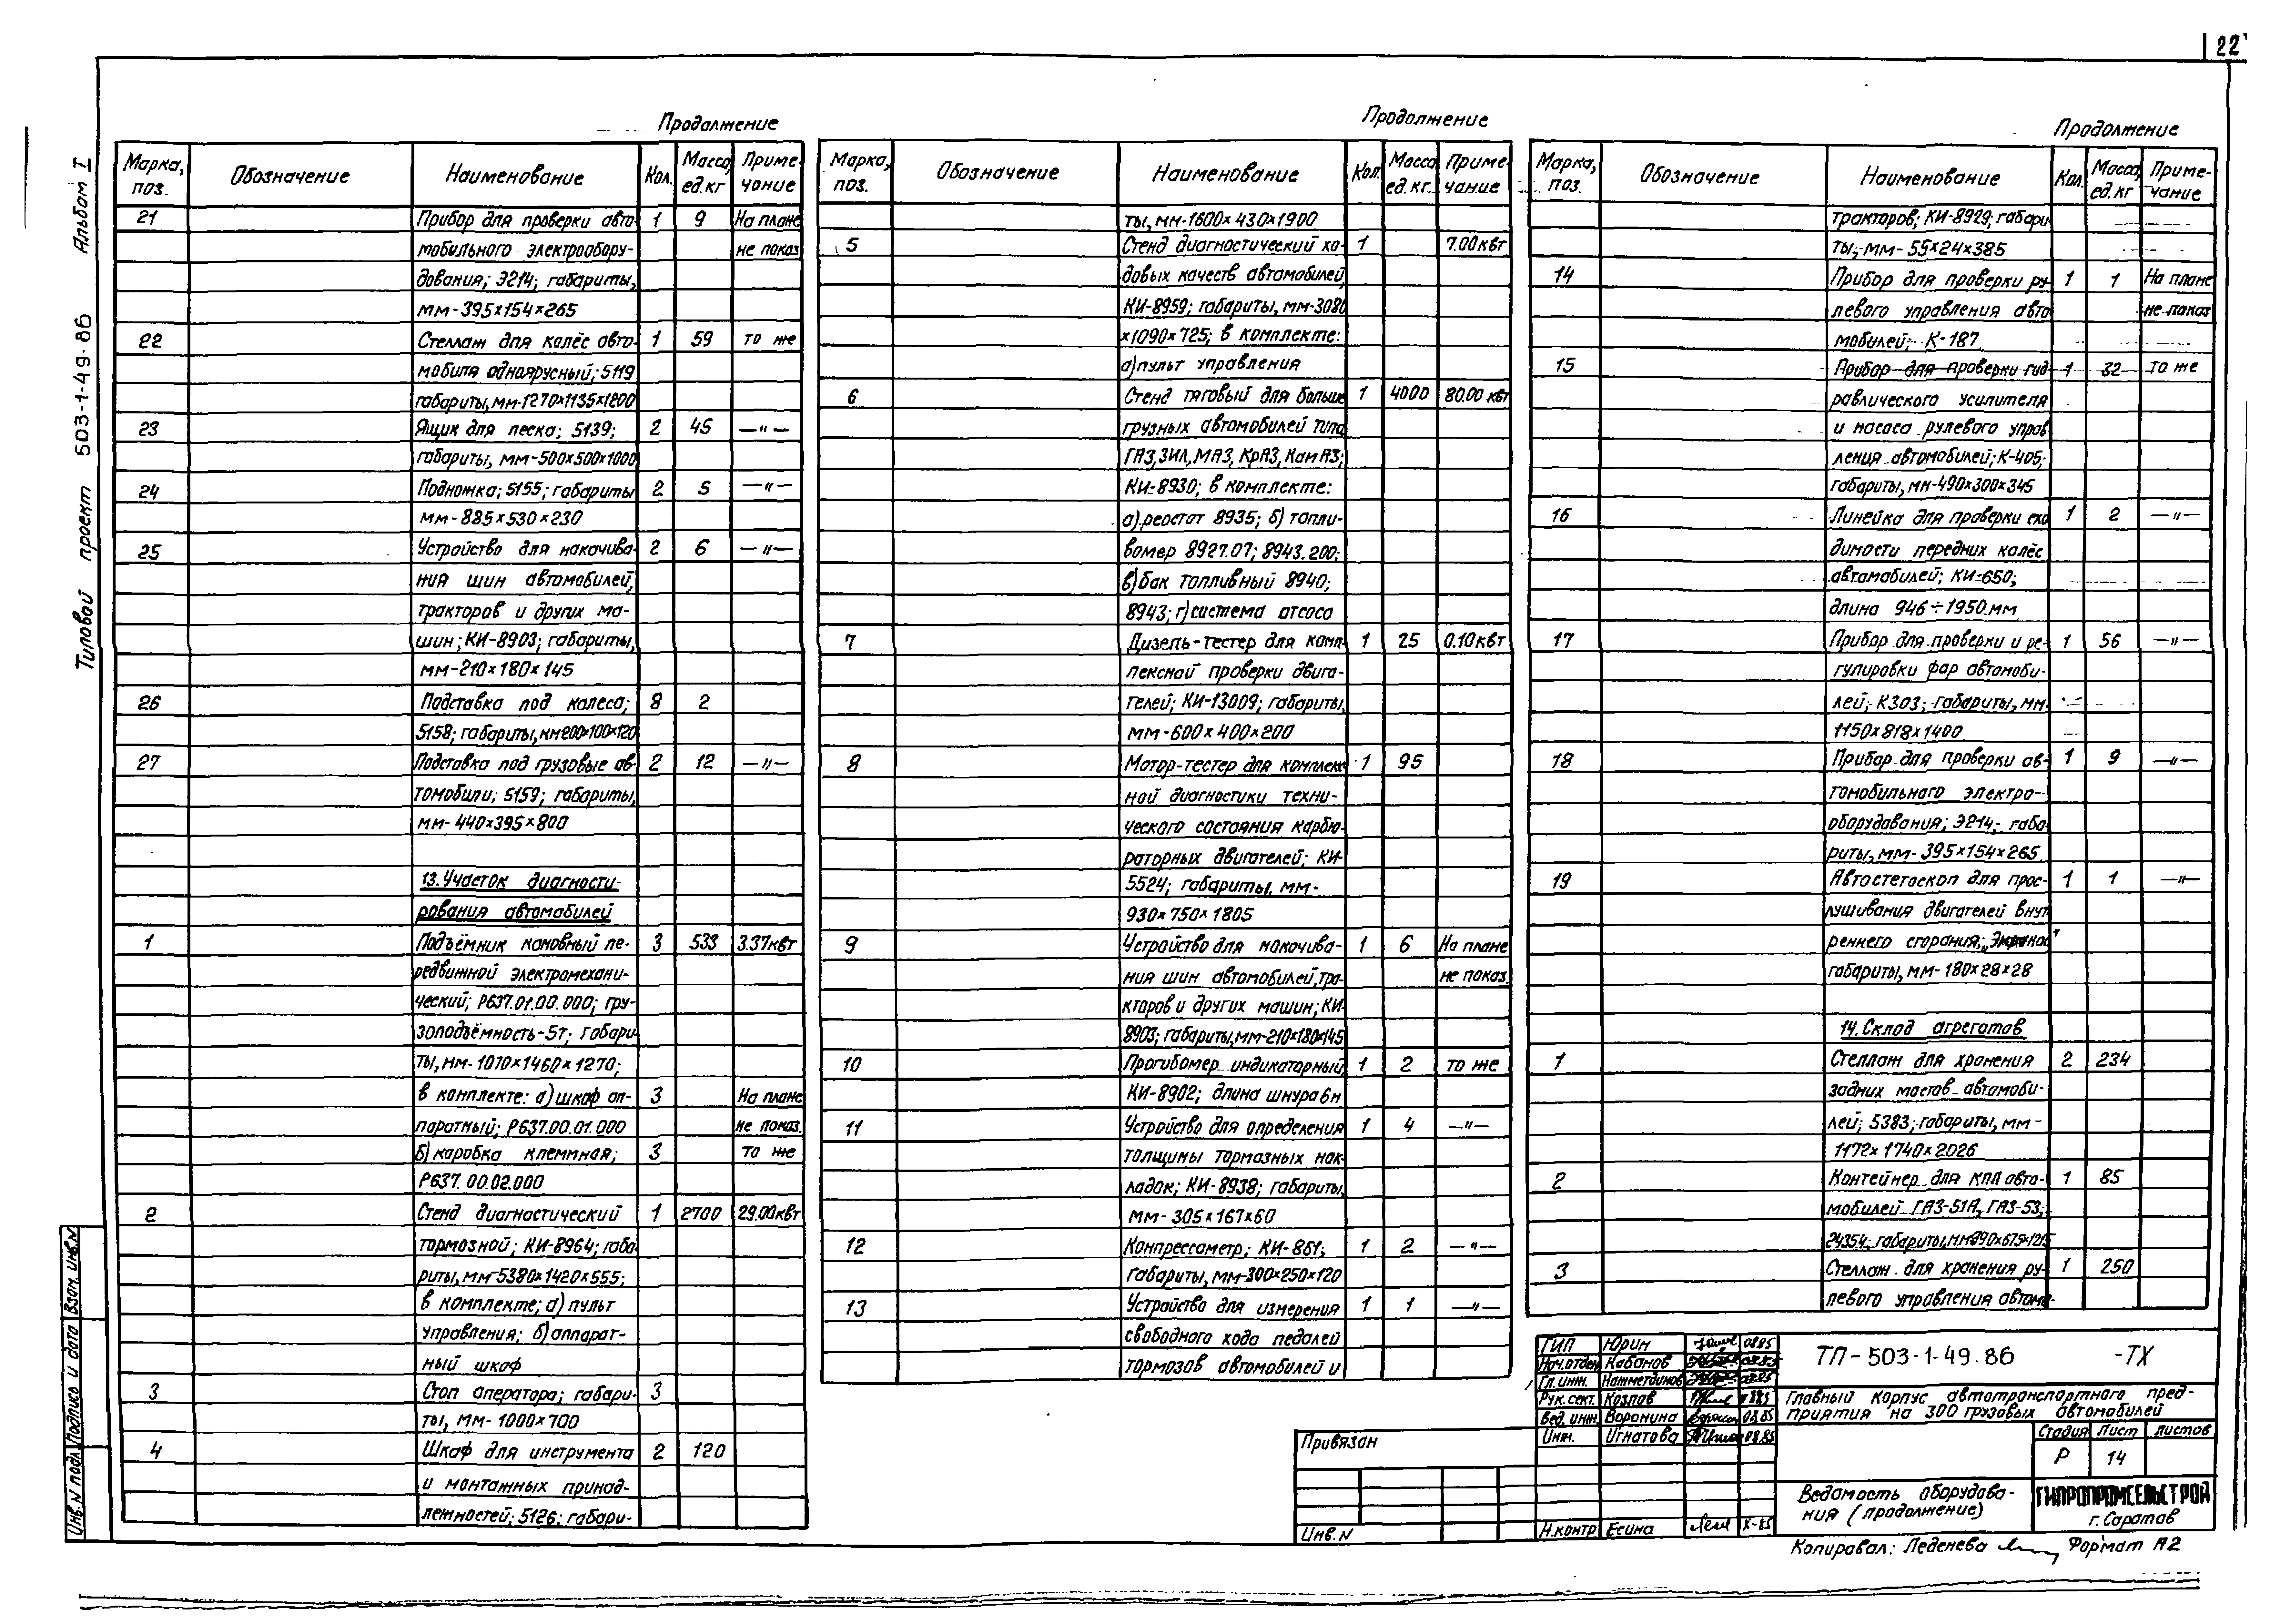 22
Типовой проект 503-1-49.86 Альбом I
Продолжение
Марка, поз. Обозначение Наименование Кол. Масса ед. кг Примечание
21 Прибор для проверки авто- 1 9 На плане
мобильного электрообору- не показ
дования; Э214; габариты,
мм-395×154×265
22 Стеллаж для колёс авто- 1 59 то же
мобиля одноярусный; 5119
габариты, мм-1270×1135×1800
23 Ящик для песка; 5139; 2 45 —〃—
габариты, мм-500×500×1000
24 Подножка; 5155; габариты 2 5 —〃—
мм-885×530×230
25 Устройство для накачива- 2 6 —〃—
ния шин автомобилей,
тракторов и других ма-
шин; КИ-8903; габариты,
мм-210×180×145
26 Подставка под колеса; 8 2
5158; габариты, мм200×100×120
27 Подставка под грузовые ав- 2 12 —〃—
томобили; 5159; габариты,
мм-440×395×800
13. Участок диагности-
рования автомобилей
1 Подъёмник канавный пе- 3 533 3.37квт
редвижной электромехани-
ческий; Р637.01.00.000; гру-
зоподъёмность-5т; габари
ты, мм-1070×1460×1270;
в комплекте: а) шкаф ап- 3 На плане
паратный; Р637.00.01.000 не показ.
б) коробка клеммная; 3 то же
Р637.00.02.000
2 Стенд диагностический 1 2700 29.00квт
тормозной; КИ-8964; габа
риты, мм-5380×1420×555;
в комплекте; а) пульт
управления; б) аппарат-
ный шкаф
3 Стол оператора; габари- 3
ты, мм-1000×700
4 Шкаф для инструмента 2 120
и монтажных принад-
лежностей; 5126; габари-
Продолжение
Марка, поз. Обозначение Наименование Кол. Масса ед. кг Примечание
ты, мм-1600×430×1900
5 Стенд диагностический хо- 1 7.00квт
довых качеств автомобилей,
КИ-8959; габариты, мм-3080
×1090×725; в комплекте:
а) пульт управления
6 Стенд тяговый для больше 1 4000 80.00 квт
грузных автомобилей типа
ГАЗ, ЗИЛ, МАЗ, КрАЗ, КамАЗ;
КИ-8930; в комплекте:
а) реостат 8935; б) топли-
вомер 8927.07; 8943.200;
в) бак топливный 8940;
8943; г) система отсоса
7 Дизель-тестер для комп- 1 25 0.10квт
лексной проверки двига-
телей; КИ-13009; габариты,
мм-600×400×200
8 Мотор-тестер для комплекс 1 95
ной диагностики техни-
ческого состояния карбю-
раторных двигателей; КИ-
5524; габариты, мм-
930×750×1805
9 Устройство для накачива- 1 6 На плане
ния шин автомобилей, тра- не показ.
кторов и других машин; КИ-
8903; габариты, мм-210×180×145
10 Прогибомер индикаторный 1 2 то же
КИ-8902; длина шнура 6м
11 Устройство для определения 1 4 —〃—
толщины тормозных нак-
ладок; КИ-8938; габариты,
мм-305×167×60
12 Компрессометр; КИ-861; 1 2 —〃—
габариты, мм-300×250×120
13 Устройство для измерения 1 1 —〃—
свободного хода педалей
тормозов автомобилей и
Продолжение
Марка, поз. Обозначение Наименование Кол. Масса ед. кг Примечание
тракторов; КИ-8929; габари
ты, мм-55×24×385
14 Прибор для проверки ру- 1 1 На плане
левого управления авто не показ
мобилей; К-187
15 Прибор для проверки гид- 1 32 то же
равлического усилителя
и насоса рулевого управ
ления автомобилей; К-405;
габариты, мм-490×300×345
16 Линейка для проверки схо 1 2 —〃—
димости передних колёс
автомобилей; КИ-650;
длина 946÷1950мм
17 Прибор для проверки и ре- 1 56 —〃—
гулировки фар автомоби-
лей; К303; габариты, мм-
1150×818×1400
18 Прибор для проверки ав- 1 9 —〃—
томобильного электро-
оборудования; Э214; габа-
риты, мм-395×154×265
19 Автостетоскоп для прос- 1 1 —〃—
лушивания двигателей внут
реннего сгорания;
габариты, мм-180×28×28
14. Склад агрегатов
1 Стеллаж для хранения 2 234
задних мостов автомоби-
лей; 5383; габариты, мм-
1172×1740×2026
2 Контейнер для КПП авто- 1 85
мобилей ГАЗ-51А, ГАЗ-53;
24354; габариты,
3 Стеллаж для хранения ру- 1 250
левого управления автомо-
ГИП Юрин 08.85
Нач.отдел Кабанов 08.85
Гл. инж. 08.85
Рук. сект. Козлов
Вед. инж. Воронина 08.85
Инж. Игнатова 08.85
Н.контр Есина X-85
ТП-503-1-49.86 -ТХ
Главный корпус автотранспортного пред-
приятия на 300 грузовых автомобилей
Стадия Лист Листов
Р 14
Ведомость оборудова-
ния (продолжение)
ГИПРОПРОМСЕЛЬСТРОЙ
г. Саратов
Привязан
Инв. N
Копировал: Леденева Формат А2
Инв. N подл. Подпись и дата Взам. инв. N